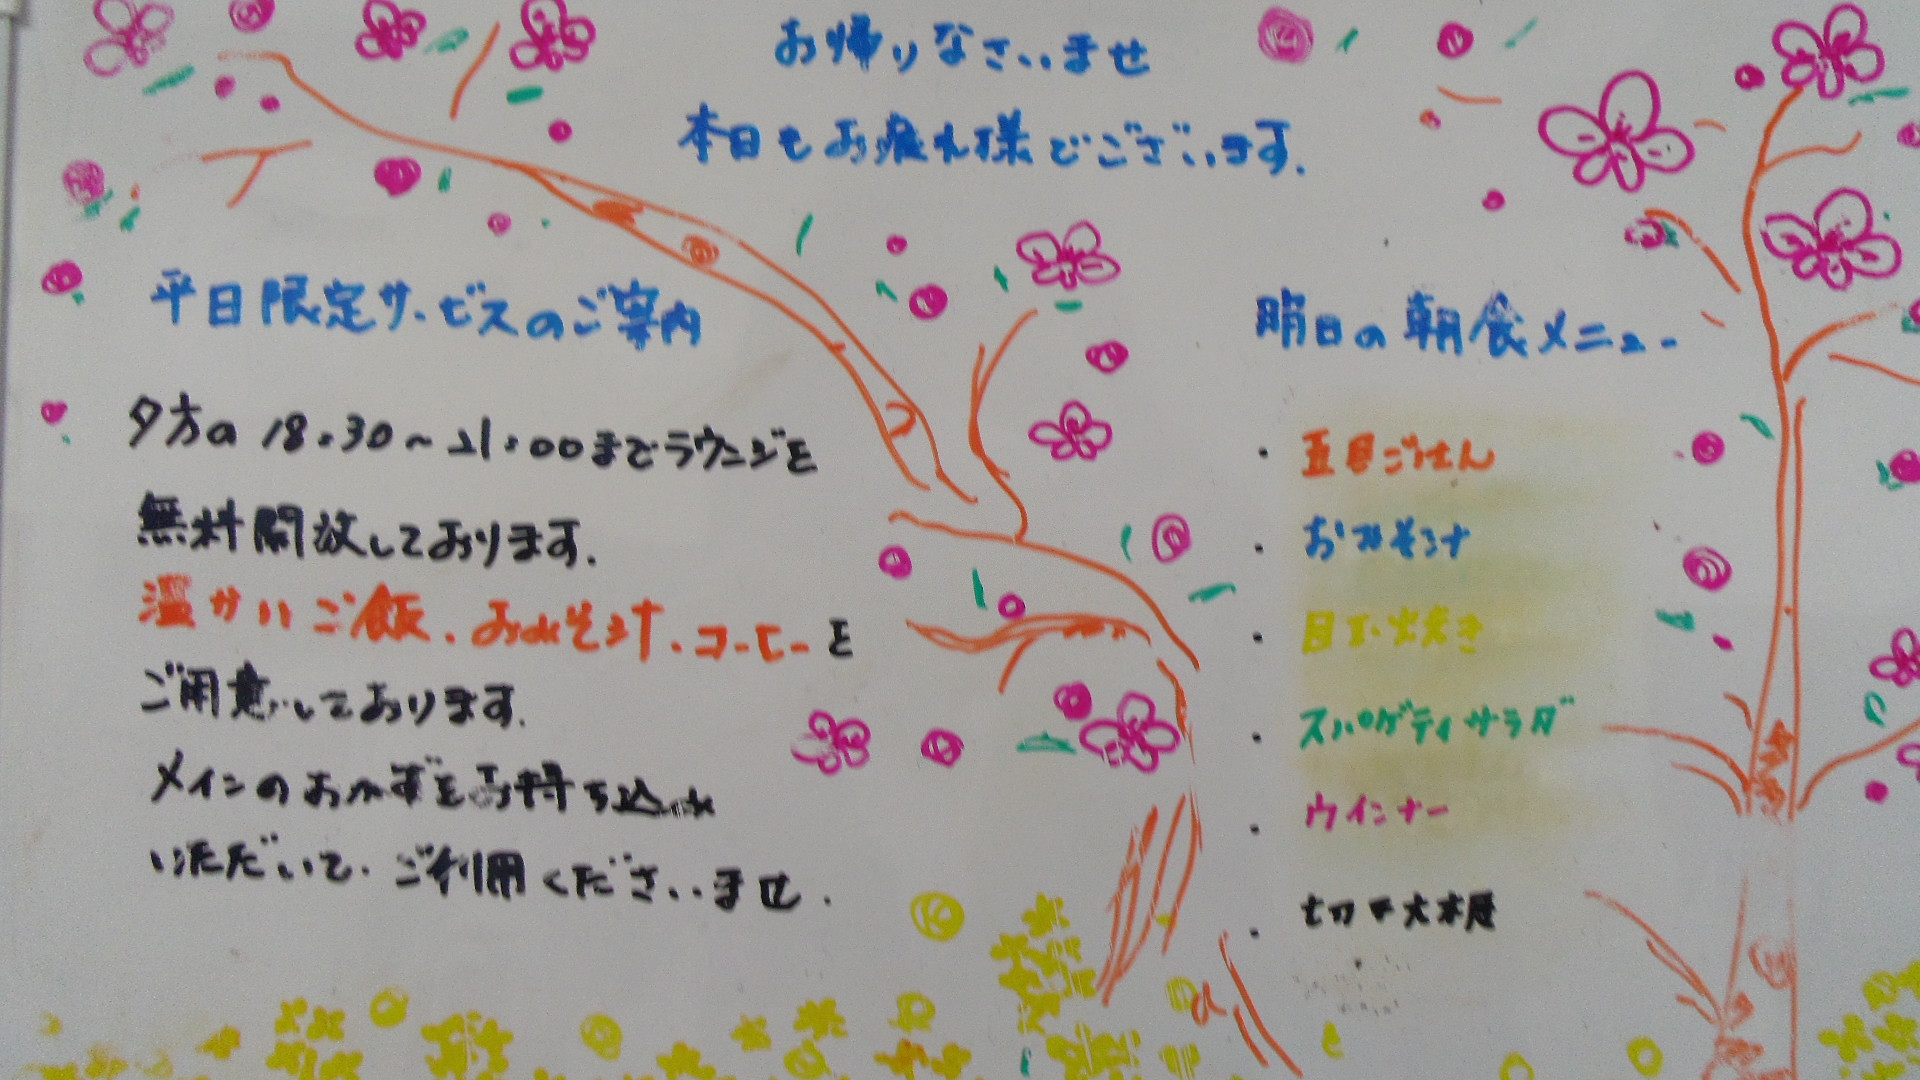 お帰りなさいませ
本日もお疲れ様でございます.
平日限定サービスのご案内
夕方の 18:30～21:00までラウンジを
無料開放しております.
温かいご飯.おみそ汁.コーヒーを
ご用意しております.
メインのおかずをお持ち込み
いただいて.ご利用くださいませ.
明日の朝食メニュー
・五目ごはん
・おみそ汁
・目玉焼き
・スパゲティサラダ
・ウインナー
・切干大根